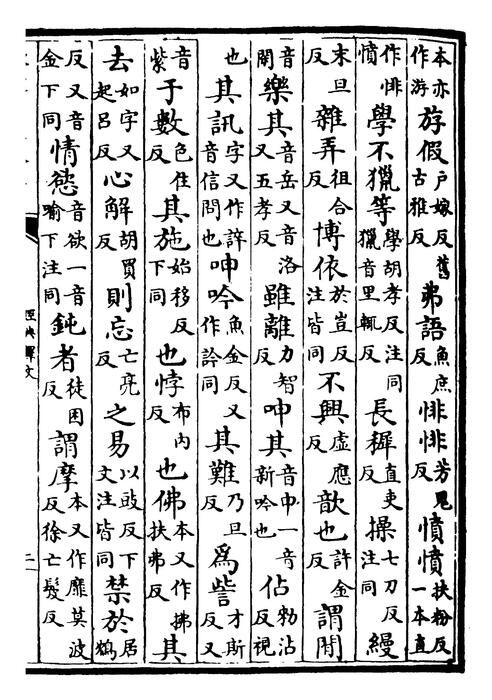 本亦作游斿假户嫁反舊古雅反弗語魚庶反悱悱芳鬼反憤憤扶粉反一本直
作悱憤學不獵等學胡孝反注同獵音里輒反長穉直吏反操七刀反注同縵
末旦反雜弄徂合反博依於豈反注皆同不興虛應反歆也許金反謂閒
音閑樂其音岳又音洛又五孝反雖離力智反呻其音申一音新吟也佔勑沾反視
也其訊字又作誶音信問也呻吟魚金反又作訡同其難乃旦反為訾才斯反又
音紫于數色住反其施始移反下同也悖布內反也佛本又作拂扶弗反其
去如字又起呂反心解胡買反則忘亡亮反之易以豉反下文注皆同禁於居鴆
反又音金下同情慾音欲一音喻下注同鈍者徒困反謂摩本又作靡莫波反徐亡髲反
經典釋文
二